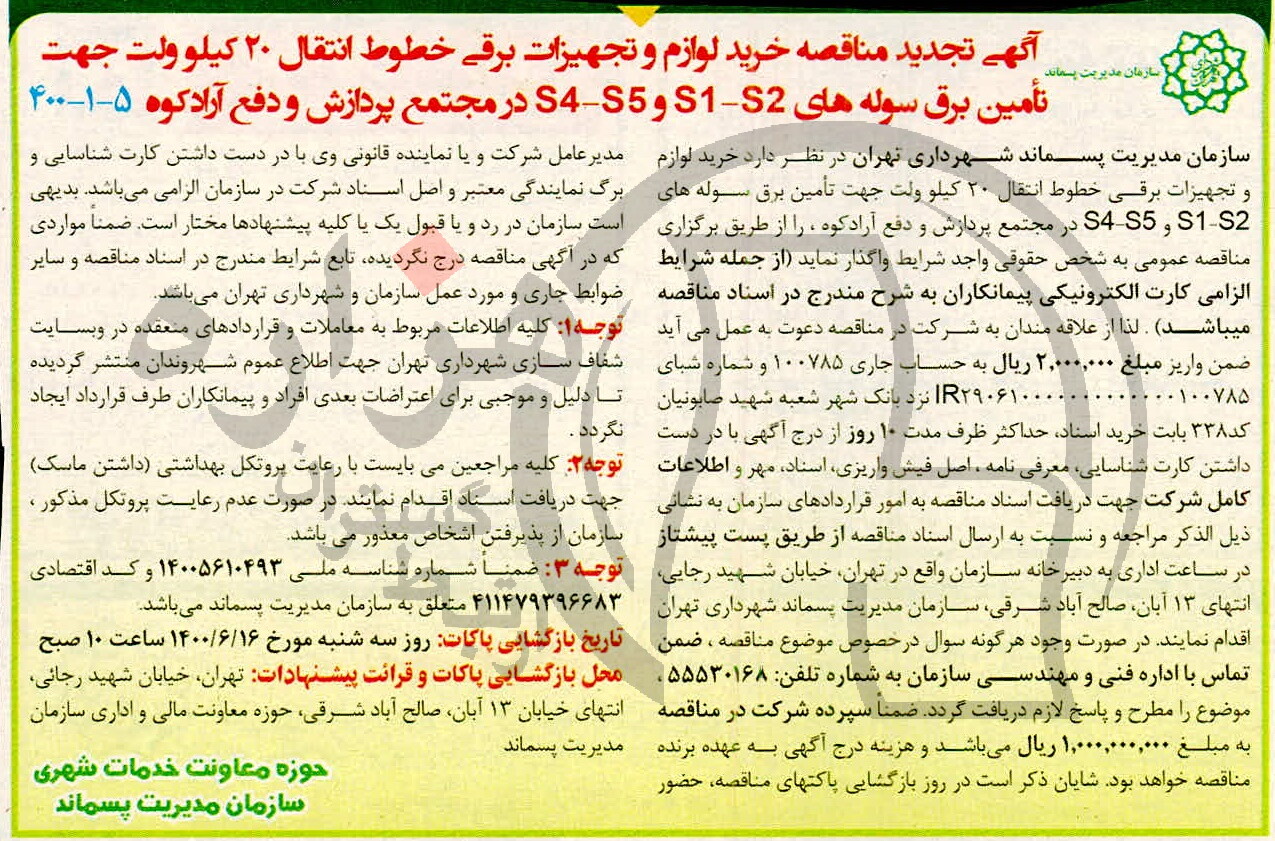 سازمان مدیریت پسماند
آگهی تجدید مناقصه خرید لوازم و تجهیزات برقی خطوط انتقال ۲۰ کیلو ولت جهت
تأمین برق سوله های S1-S2 و S4-S5 در مجتمع پردازش و دفع آرادکوه ۵-۱-۴۰۰
سازمان مدیریت پسماند شهرداری تهران در نظر دارد خرید لوازم
و تجهیزات برقی خطوط انتقال ۲۰ کیلو ولت جهت تأمین برق سوله های
S1-S2 و S4-S5 در مجتمع پردازش و دفع آرادکوه ، را از طریق برگزاری
مناقصه عمومی به شخص حقوقی واجد شرایط واگذار نماید (از جمله شرایط
الزامی کارت الکترونیکی پیمانکاران به شرح مندرج در اسناد مناقصه
میباشد) . لذا از علاقه مندان به شرکت در مناقصه دعوت به عمل می آید
ضمن واریز مبلغ ۲,۰۰۰,۰۰۰ ریال به حساب جاری ۱۰۰۷۸۵ و شماره شبای
نزد بانک شهر شعبه شهید صابونیان
کد۳۳۸ بابت خرید اسناد، حداکثر ظرف مدت ۱۰ روز از درج آگهی با در دست
داشتن کارت شناسایی، معرفی نامه ، اصل فیش واریزی، اسناد، مهر و اطلاعات
کامل شرکت جهت دریافت اسناد مناقصه به امور قراردادهای سازمان به نشانی
ذیل الذکر مراجعه و نسبت به ارسال اسناد مناقصه از طریق پست پیشتاز
در ساعت اداری به دبیرخانه سازمان واقع در تهران، خیابان شهید رجایی،
انتهای ۱۳ آبان، صالح آباد شرقی، سازمان مدیریت پسماند شهرداری تهران
اقدام نمایند. در صورت وجود هرگونه سوال درخصوص موضوع مناقصه ، ضمن
تماس با اداره فنی و مهندسی سازمان به شماره تلفن: ۵۵۵۳۰۱۶۸ ،
موضوع را مطرح و پاسخ لازم دریافت گردد. ضمناً سپرده شرکت در مناقصه
به مبلغ ۱,۰۰۰,۰۰۰,۰۰۰ ریال می‌باشد و هزینه درج آگهی به عهده برنده
مناقصه خواهد بود. شایان ذکر است در روز بازگشایی پاکتهای مناقصه، حضور
مدیرعامل شرکت و یا نماینده قانونی وی با در دست داشتن کارت شناسایی و
برگ نمایندگی معتبر و اصل اسناد شرکت در سازمان الزامی می‌باشد. بدیهی
است سازمان در رد و یا قبول یک یا کلیه پیشنهادها مختار است. ضمناً مواردی
که در آگهی مناقصه درج نگردیده، تابع شرایط مندرج در اسناد مناقصه و سایر
ضوابط جاری و مورد عمل سازمان و شهرداری تهران می‌باشد.
توجه۱: کلیه اطلاعات مربوط به معاملات و قراردادهای منعقده در وبسایت
شفاف سازی شهرداری تهران جهت اطلاع عموم شهروندان منتشر گردیده
تا دلیل و موجبی برای اعتراضات بعدی افراد و پیمانکاران طرف قرارداد ایجاد
نگردد .
توجه۲: کلیه مراجعین می بایست با رعایت پروتکل بهداشتی (داشتن ماسک)
جهت دریافت اسناد اقدام نمایند. در صورت عدم رعایت پروتکل مذکور ،
سازمان از پذیرفتن اشخاص معذور می باشد.
توجه ۳: ضمناً شماره شناسه ملی ۱۴۰۰۵۶۱۰۴۹۳ و کد اقتصادی
۴۱۱۴۷۹۳۹۶۶۸۳ متعلق به سازمان مدیریت پسماند می‌باشد.
تاریخ بازگشایی پاکات: روز سه شنبه مورخ ۱۴۰۰/۶/۱۶ ساعت ۱۰ صبح
محل بازگشایی پاکات و قرائت پیشنهادات: تهران، خیابان شهید رجائی،
انتهای خیابان ۱۳ آبان، صالح آباد شرقی، حوزه معاونت مالی و اداری سازمان
مدیریت پسماند
حوزه معاونت خدمات شهری
سازمان مدیریت پسماند
هزاره